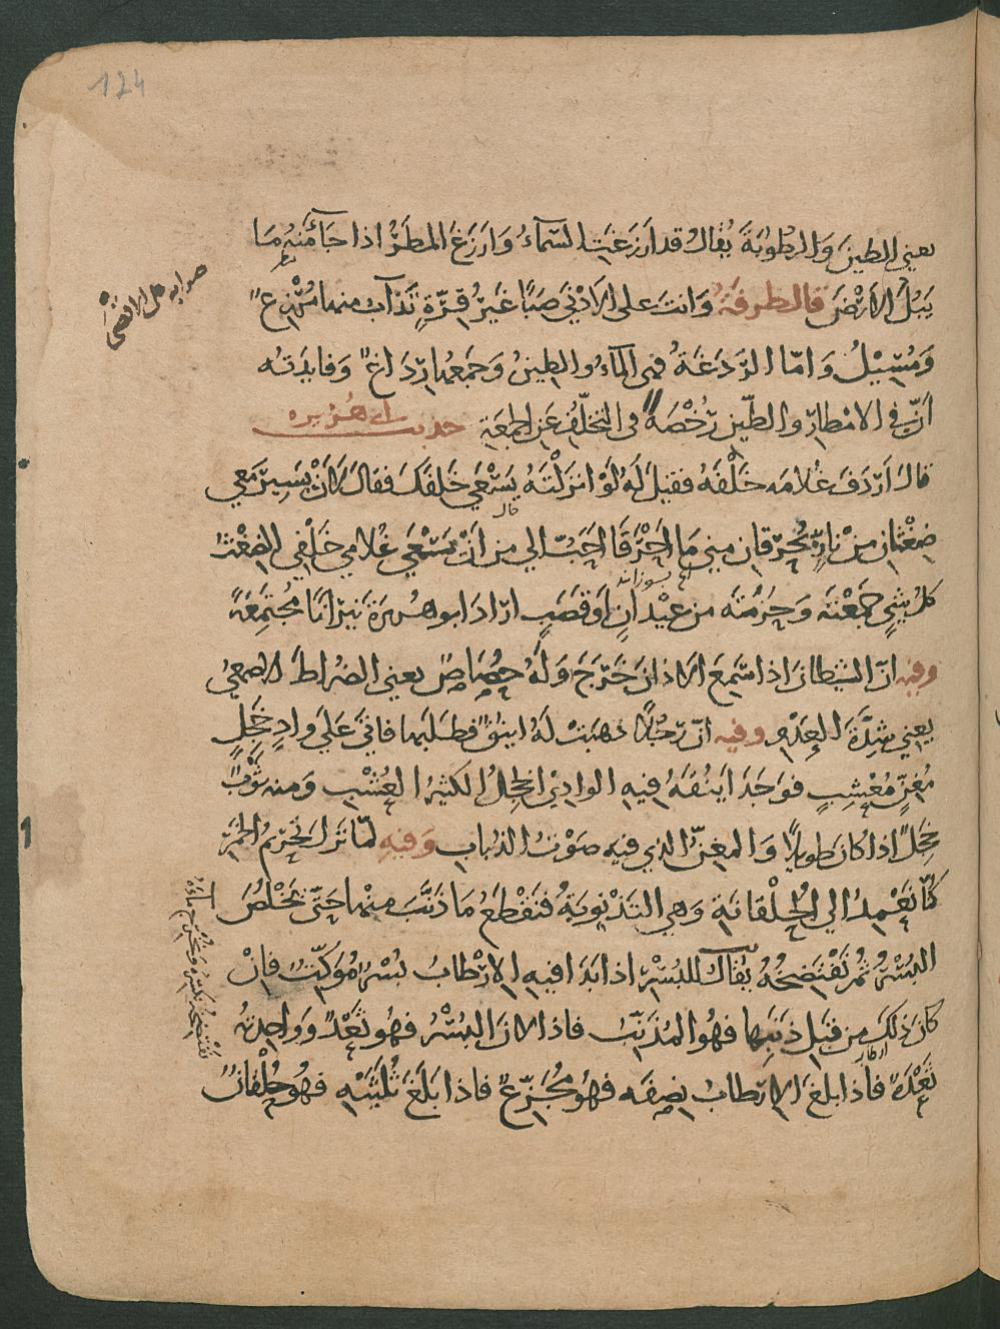 124
يعني الطينَ وَالرطُوبَةَ يُقالُ قد ارَزَغَتِ السّمآءُ وَارَزَغَ المطَرُ اذا جَآءَ منهُ مَا
يَبُلُّ الارَضَ قال طرفَةُ وَانتَ على الادْنَي صَبًا غَيرُ قِرّةٍ تَذَآبَ منها مُرْزِغٌ
وَمُسِيْلُ وَامّا الرَّدَغَةُ فهي المآءُ والطينُ وَجَمعُها رِدَاغٌ وَفايدَتُه
اَنّ في الامْطارِ والطّينِ رُخْصَةً في التخلّفِ عَن الجُمعَةِ حديث ابي هُرَيره
قالَ اَرْدَفَ غُلامَه خَلْفَهُ فقيلَ لَهُ لَوْ انزَلْتَهُ يَسْعَي خَلفَكَ فقالَ لاَنْ يَسِيرَ معي
ضِغْثانِ مِنْ نارٍ يُحْرِقانِ مِني مَا احْرَقَا احَبّ الي من اَنْ يَسْعَي غُلامي خَلْفي الضِغْثُ
قال
كلُ شيٍ جَمَعْتَه وَحزمْتَه من عِيْدانٍ اَوقَصَبٍ ارَادَ ابو هُريرَةَ نيرَانًا مُجتَمِعَةً
وفيه انّ الشيطانَ اذا سَمِعَ الاذانَ خَرَجَ وَلَهُ حُصَاصٌ يعني الضراطَ الاصمعيُ
يعِني شِدَّةَ العَدْوِ وفيه انّ رَجُلاً ذهبَتْ لَهُ اينُقٌ فطلَبَها فاتَيَ عَلَي وادٍ خَجِلٍ
مُغِنٍّ مُعْشِبٍ فوَجَدَ اَينُقَهُ فيهِ الوادِيْ الخَجِلُ الكثيرُ العُشْبِ وَمنه ثَوْبٌ
خَجِلٌ اذا كانَ طويلاً وَالمغِنُّ الذي فيهِ صَوْتُ الذُبابِ وَفيهِ لمّا نزلَ تَحرِيمُ الخَمْرِ
كُنّا نَعْمِدُ الي الحُلْقانَةِ وَهي التَذْنُوبَةُ فنَقْطَعُ مَا ذَنَّبَ مِنْها حَتّي نَخْلُصَ
البُسْرِ ثُم نَفْتَضِخُهُ يُقالُ للبُسْرِ اذا بَدَا فيهِ الارْطابُ بُسْرٌ مُوَكِّتٌ فاِنْ
كانَ ذلكَ من قبَلِ ذَنَبِها فهُوَ المُذَنِّبُ فاذا لانَ البُسْرُ فهُو ثَعْدٌ وَواحِدتُه
ثَعْدَةٌ فاذا بلغَ الارطابُ نِصفَه فهُو مُجَزّعٌ فاذا بَلَغَ ثُلثَيْهِ فهُو حُلْقانٌ